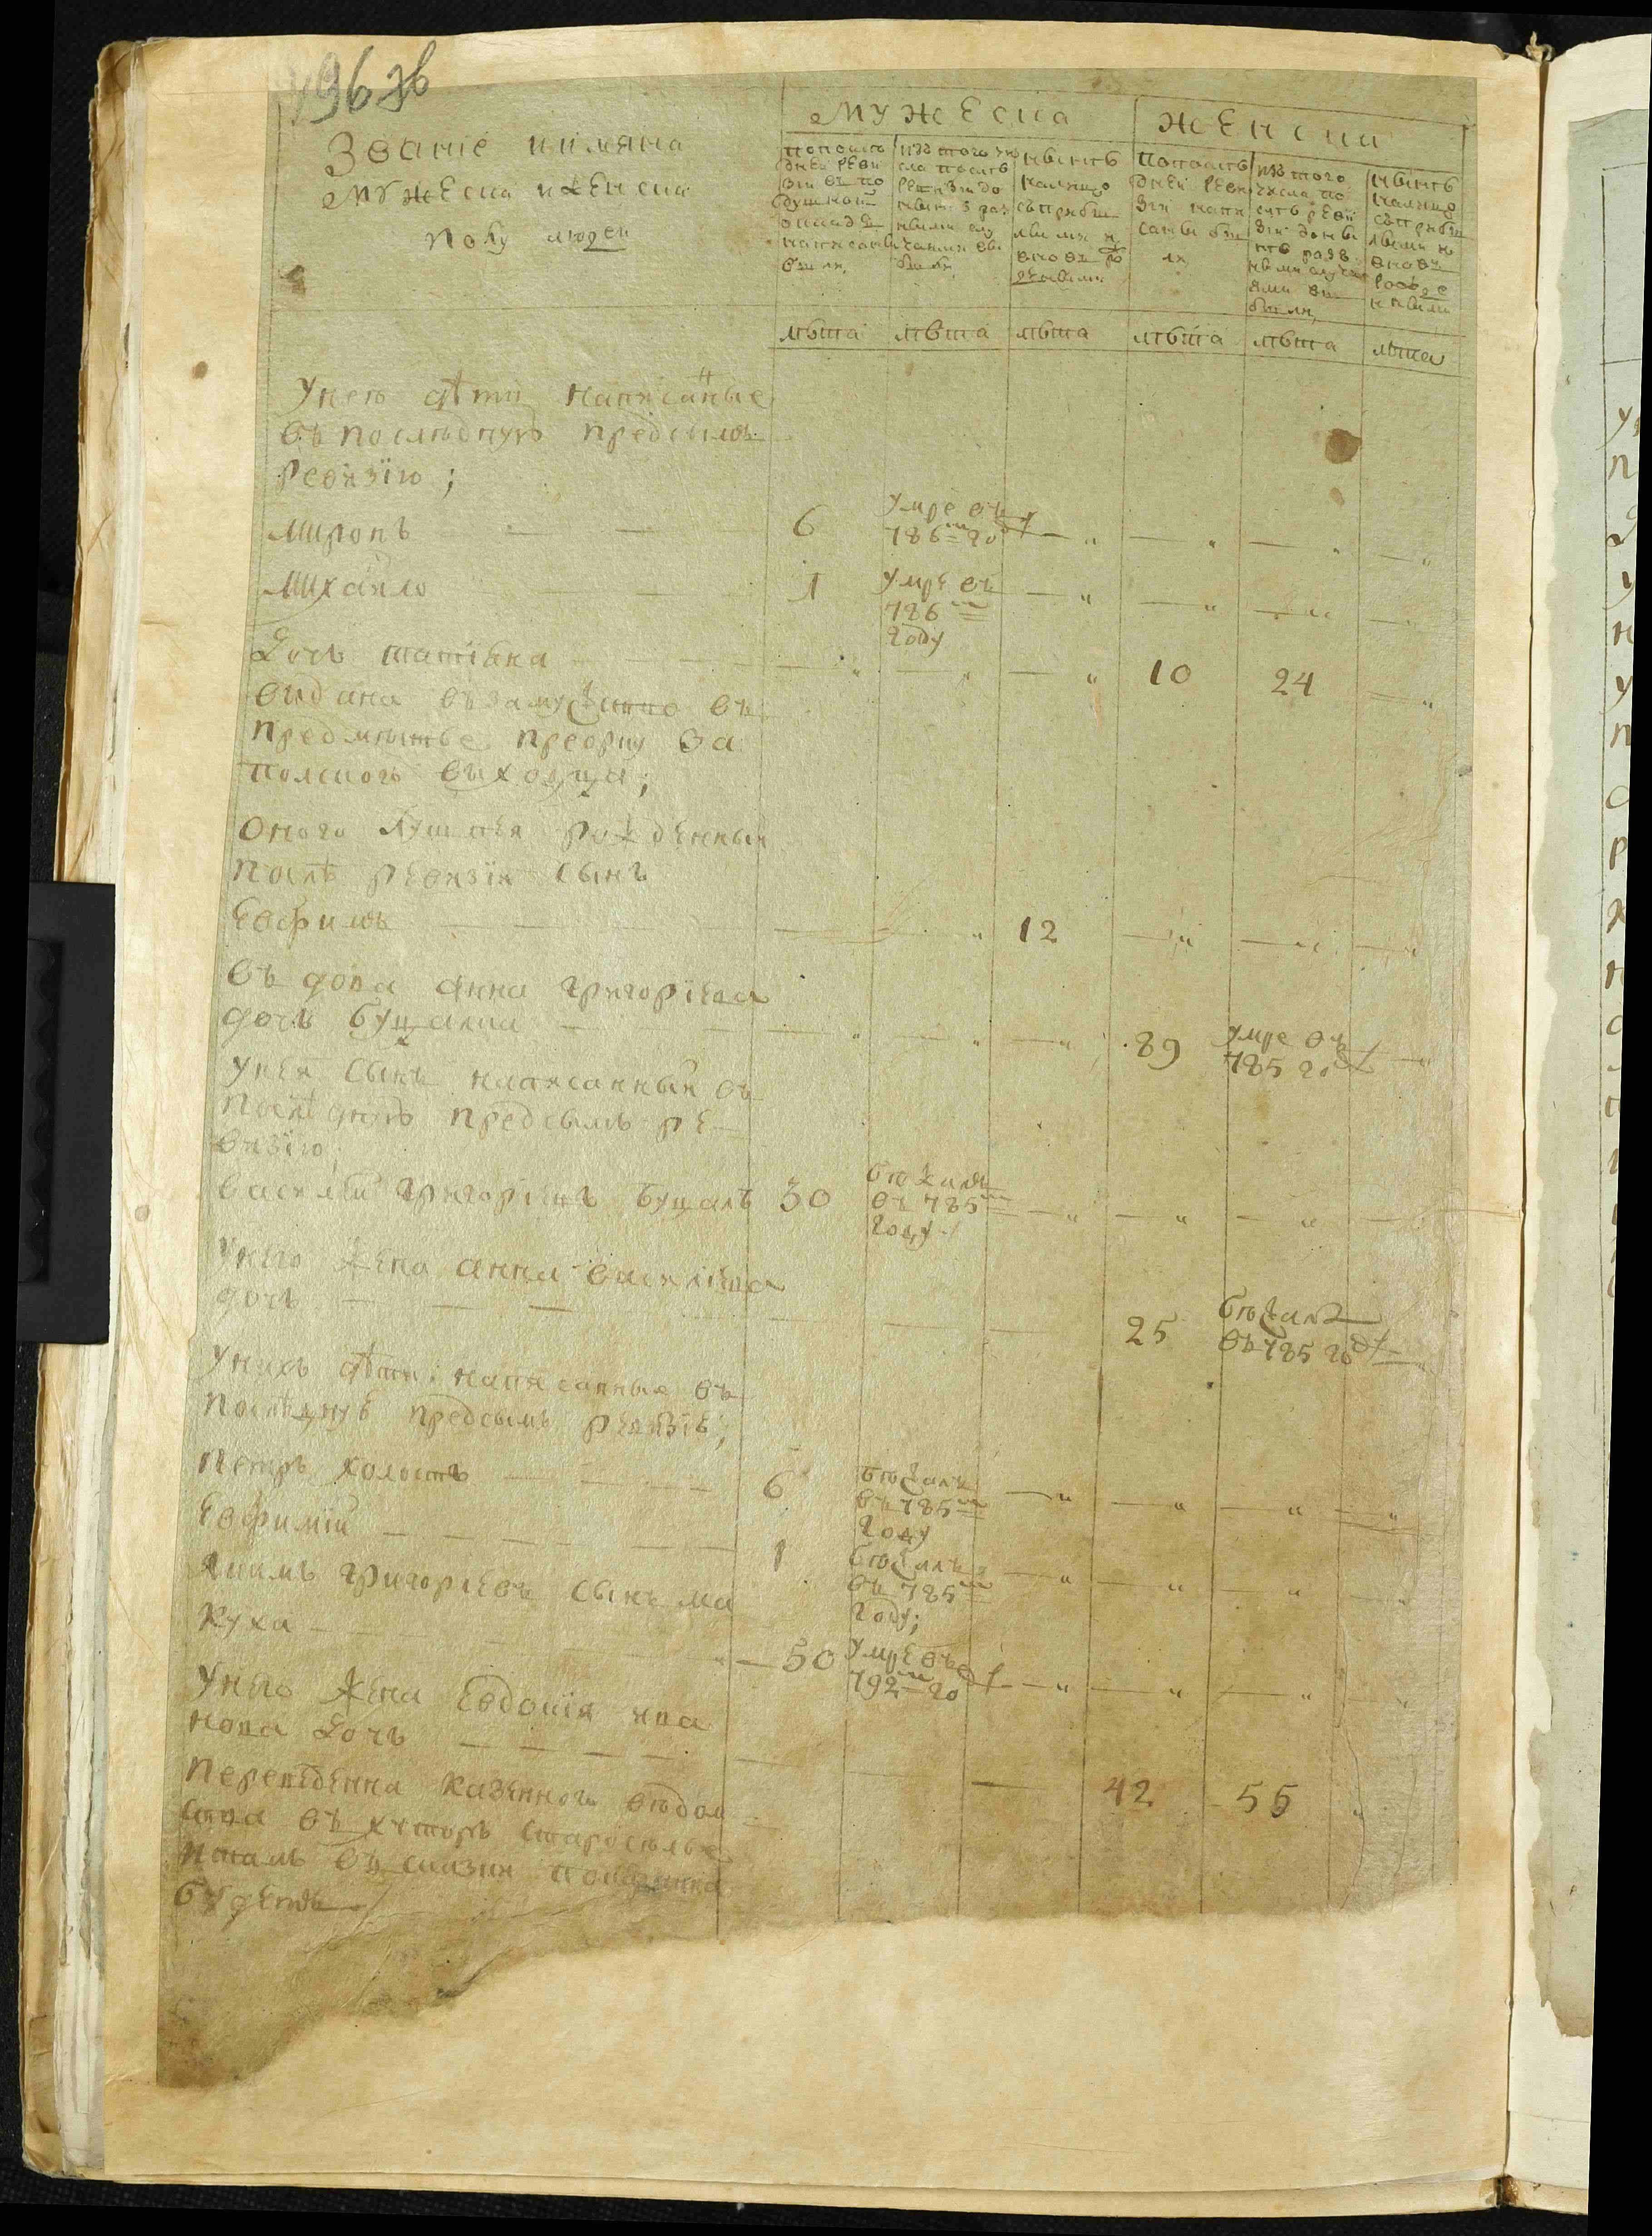 196 зв
Званіе иимяна
мужеска иженска
полу людеи
мужеска
женска
попослѣ
дней реви
зіи въ по
душной
окладъ
написаны
были,
изъ того чи
сла послѣ
ревизіи до
нынѣ раз
ными слу
чаями вы
были,
нынѣ
налицо
съприбы
лыми и
вновь ро
жденными
попослѣ
дней реви
зіи напи
саны бы
ли
изъ того
числа по
слѣ реви
зіи доны
нѣ разъ
ными случа
ями вы
были,
нынѣ
налицо
съприбы
лыми и
вновь
рожде
нными
лѣта лѣта лѣта лѣта лѣта лѣта
Унею дѣти написаные
въпослѣднуюъ предсымъ
ревизію;
Миронъ 6 умре въ
786м год
Михайло 1 умре въ
786м
году
Дочь 10 24
видана въ замужство въ
за
полского выходца;
Оного рожденный
послѣ ревизіи сынъ
Евфимъ 12
Въдова анна григоріева
дочь 89 умре въ
785 год
Унея сынъ написанный въ
послѣднуюъ предсымъ ре
визію;
василій григоріевъ Буцалъ 30 бѣжалъ
въ 785м
году
Унего жена анна василіева
дочь 25 бѣжала
въ 785 год
Унихъ дѣти написанные въ
послѣднуюъ предсымъ ревизію;
Петръ холостъ 6 бѣжалъ
въ 785м
году
Евфимій 1 бѣжалъ
въ 785м
году;
григоріевъ сынъ ма
куха 50 умре въ
792м год
Унего жена Евдокія ива
нова дочь 42 55
переведенна казенного вѣдом
ства въ хуторъ
тамъ въ сказки показанна
будетъ